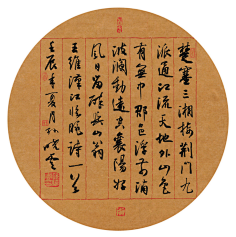 楚塞三湘接荆門九
派通江流天地外山色
有無中郡邑浮前浦
波瀾動遠空襄陽好
風日留醉與山翁
王維漢江臨眺詩一首
壬辰年夏月